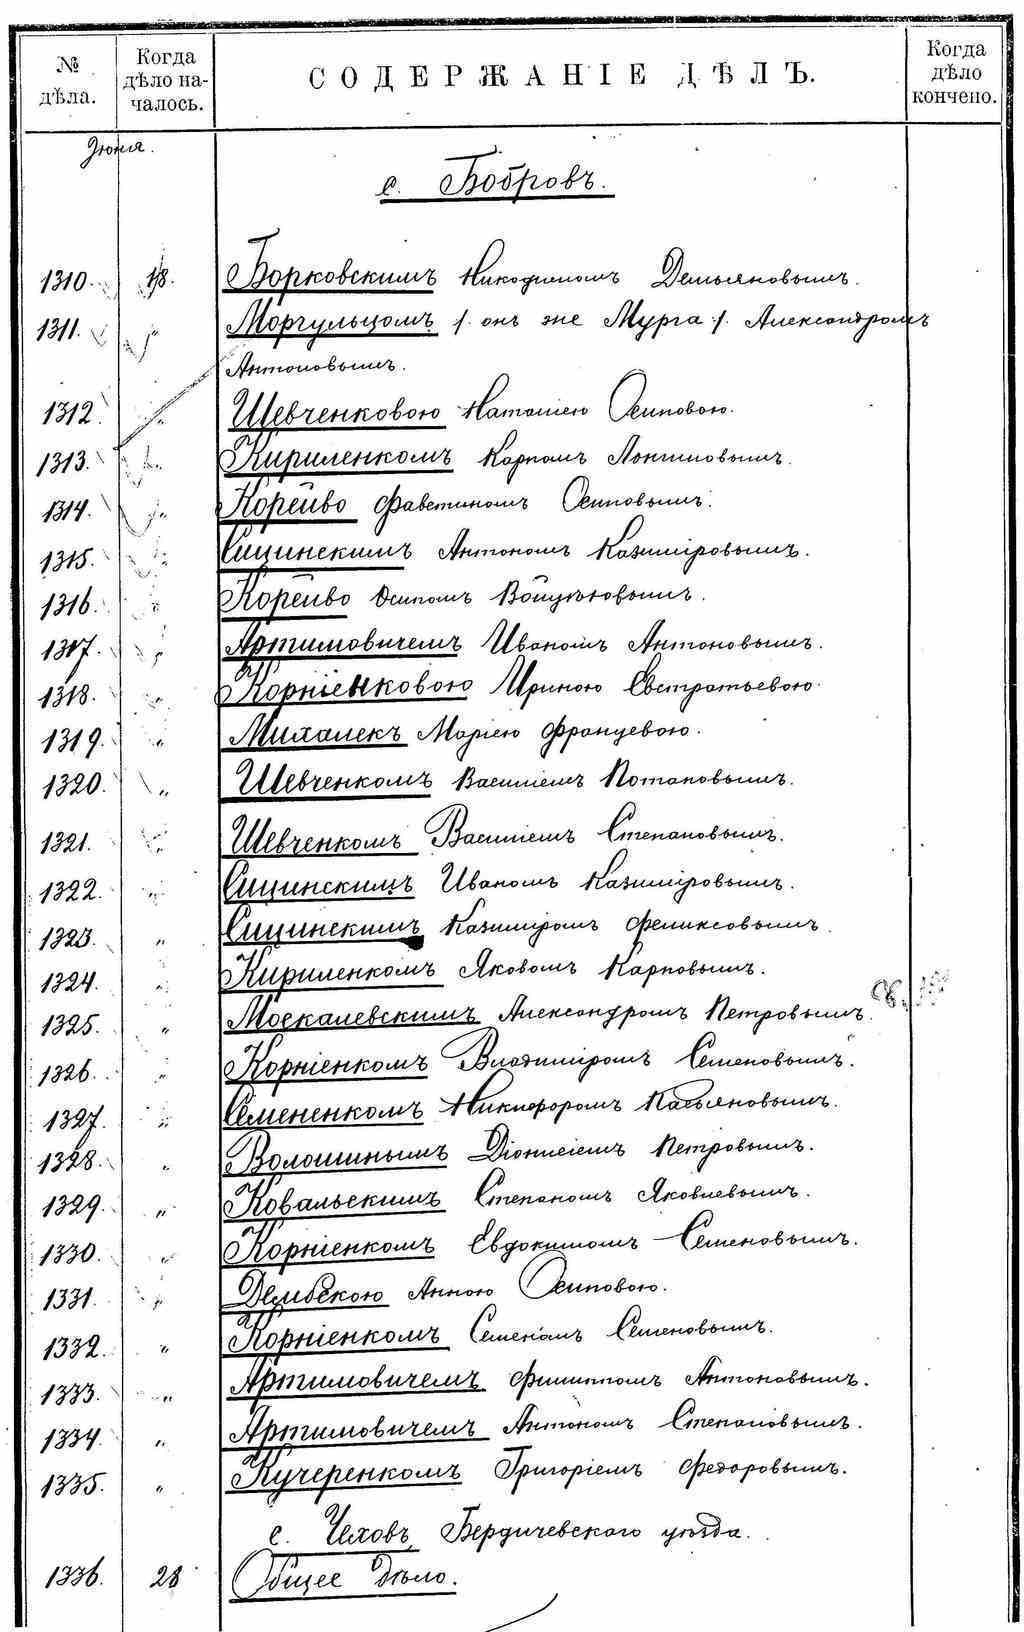 № дѣла.
Когда дѣло на-
чалось.
СОДЕРЖАНІЕ ДѢЛЪ.
Когда дѣло кончено.
Іюня.
с. Бобровъ.
1310. 18. Борковскимъ Никодимомъ Демьяновымъ.
1311. „ Моргульцомъ /. онъ же Мурга ./. Александромъ
Антоновымъ.
1312. „ Шевченковою Наталіею Осиповою.
1313. „ Кириленкомъ Карпомъ Лонгиновымъ.
1314. „ Корейво Фаветиномъ Осиповымъ.
1315. „ Сицинскимъ Антономъ Казиміровымъ.
1316. „ Корейво Осипомъ Войцѣховымъ.
1317. „ Артимовичемъ Иваномъ Антоновымъ.
1318. „ Корніенковою Ириною Евстратьевою.
1319. „ Михалек Маріею Францевою.
1320. „ Шевченкомъ Василіемъ Потаповымъ.
1321. „ Шевченкомъ Василіемъ Степановымъ.
1322. „ Сицинскимъ Иваномъ Казиміровымъ.
1323. „ Сицинскимъ Казиміромъ Феликсовымъ.
1324. „ Кириленкомъ Яковомъ Карповымъ.
1325. „ Москалевскимъ Александромъ Петровымъ. Св.
1326. „ Корніенкомъ Владиміромъ Семеновымъ.
1327. „ Семененкомъ Никифоромъ Касьяновымъ.
1328. „ Волошинымъ Діонисіемъ Петровымъ.
1329. „ Ковальскимъ Степаномъ Яковлевымъ.
1330. „ Корніенкомъ Евдокимомъ Семеновымъ.
1331. „ Дембскою Анною Осиповою.
1332. „ Корніенкомъ Семеномъ Семеновымъ.
1333. „ Артимовичемъ Филиппомъ Антоновымъ.
1334. „ Артимовичемъ Антономъ Степановымъ.
1335. „ Кучеренкомъ Григоріемъ Федоровымъ.
с. Чеховъ, Бердичевскаго уѣзда.
1336. 28 Общее Дѣло.